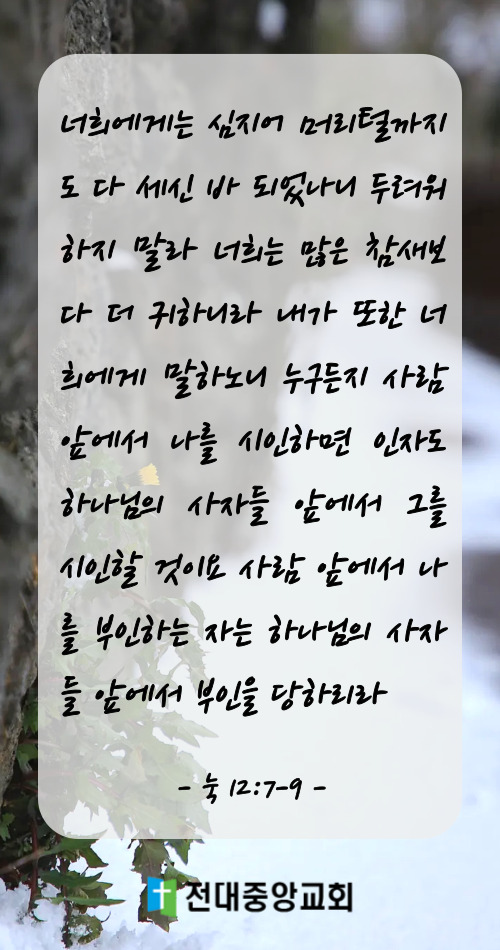 너희에게는 심지어 머리털까지
도 다 세신 바 되었나니 두려워
하지 말라 너희는 많은 참새보
다 더 귀하니라 내가 또한 너
희에게 말하노니 누구든지 사람
앞에서 나를 시인하면 인자도
하나님의 사자들 앞에서 그를
시인할 것이요 사람 앞에서 나
를 부인하는 자는 하나님의 사자
들 앞에서 부인을 당하리라
- 눅 12:7-9 -
전대중앙교회